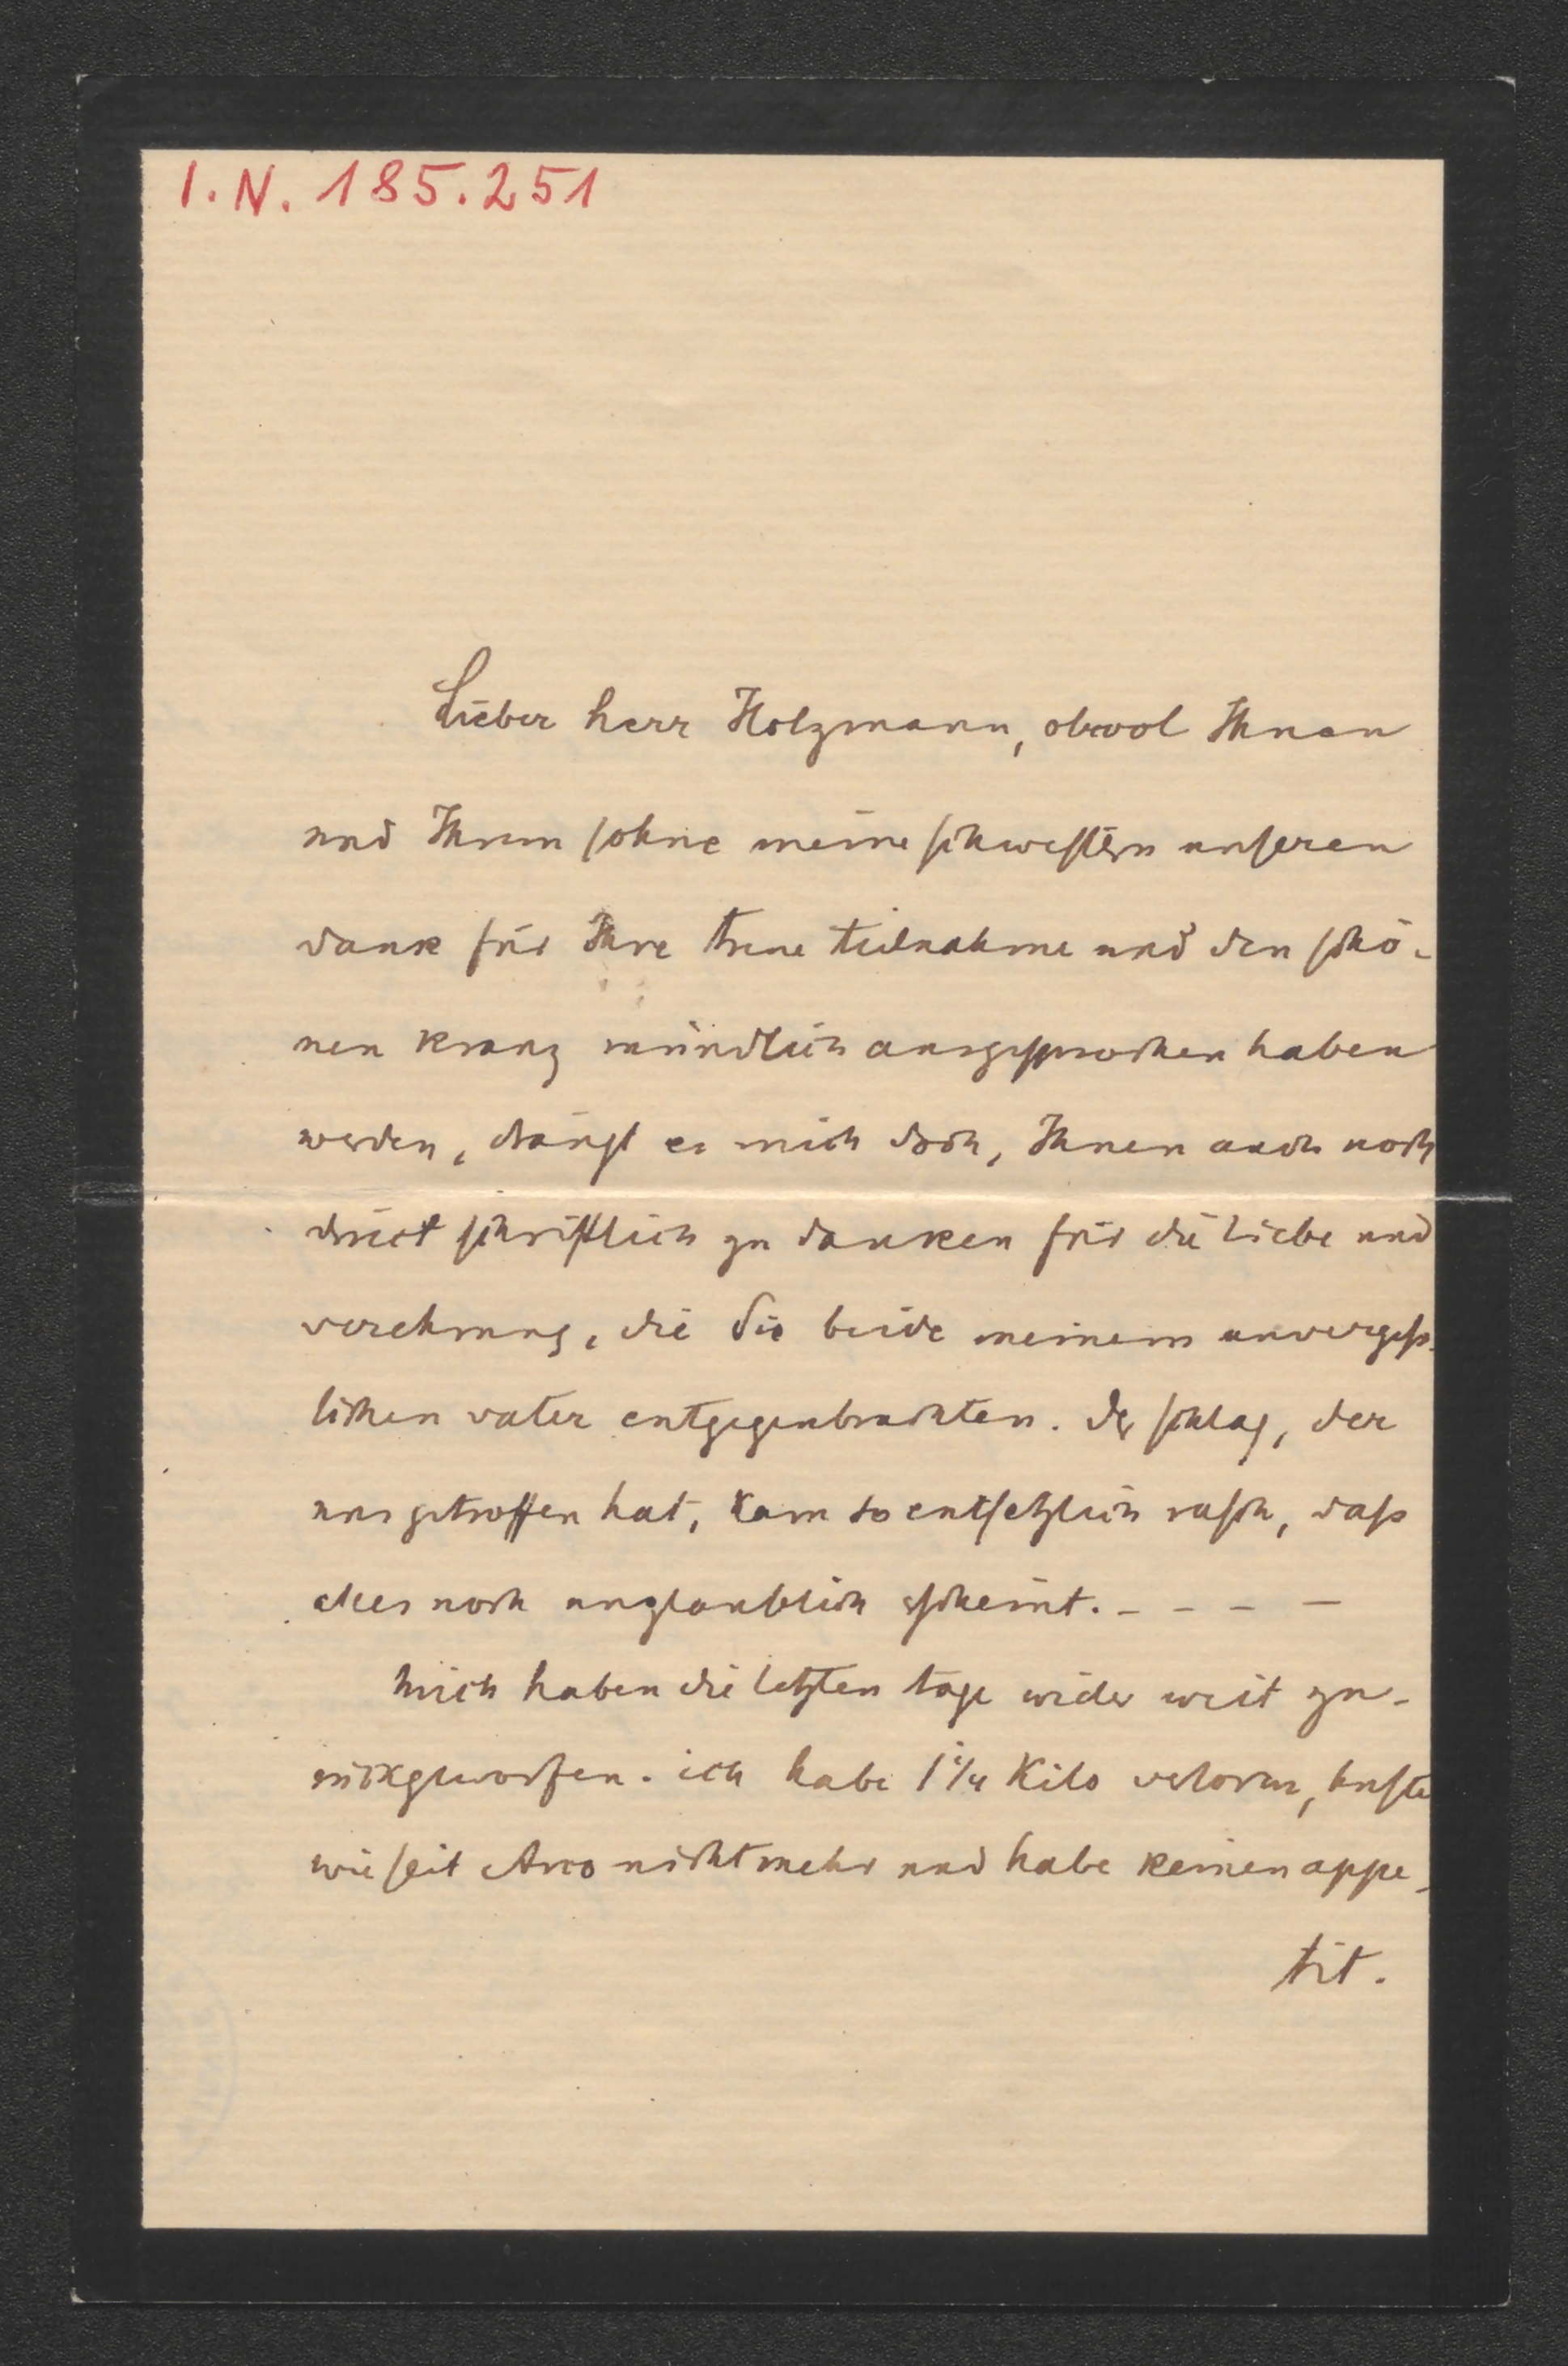 I. N. 185.251
Lieber herr Holzmann, obwol Ihnen
und Ihrem sohne meine schwestern unseren
dank für Ihre treue teilnahme und den schö-
nen kranz mündlich ausgesprochen haben
werden, drängt es mich doch, Ihnen auch noch
direct schriftlich zu danken für die liebe und
verehrung, die Sie beide meinem unvergess-
lichen vater entgegenbrachten. Der schlag, der
uns getroffen hat, kam so entsetzlich rasch, dass
alles noch unglaublich scheint. – – – –
Mich haben die letzten tage wider weit zu-
rückgeworfen. ich habe 1 1/4 Kilo verloren, huste
wie seit Arco nicht mehr und habe keinen appe-
tit.